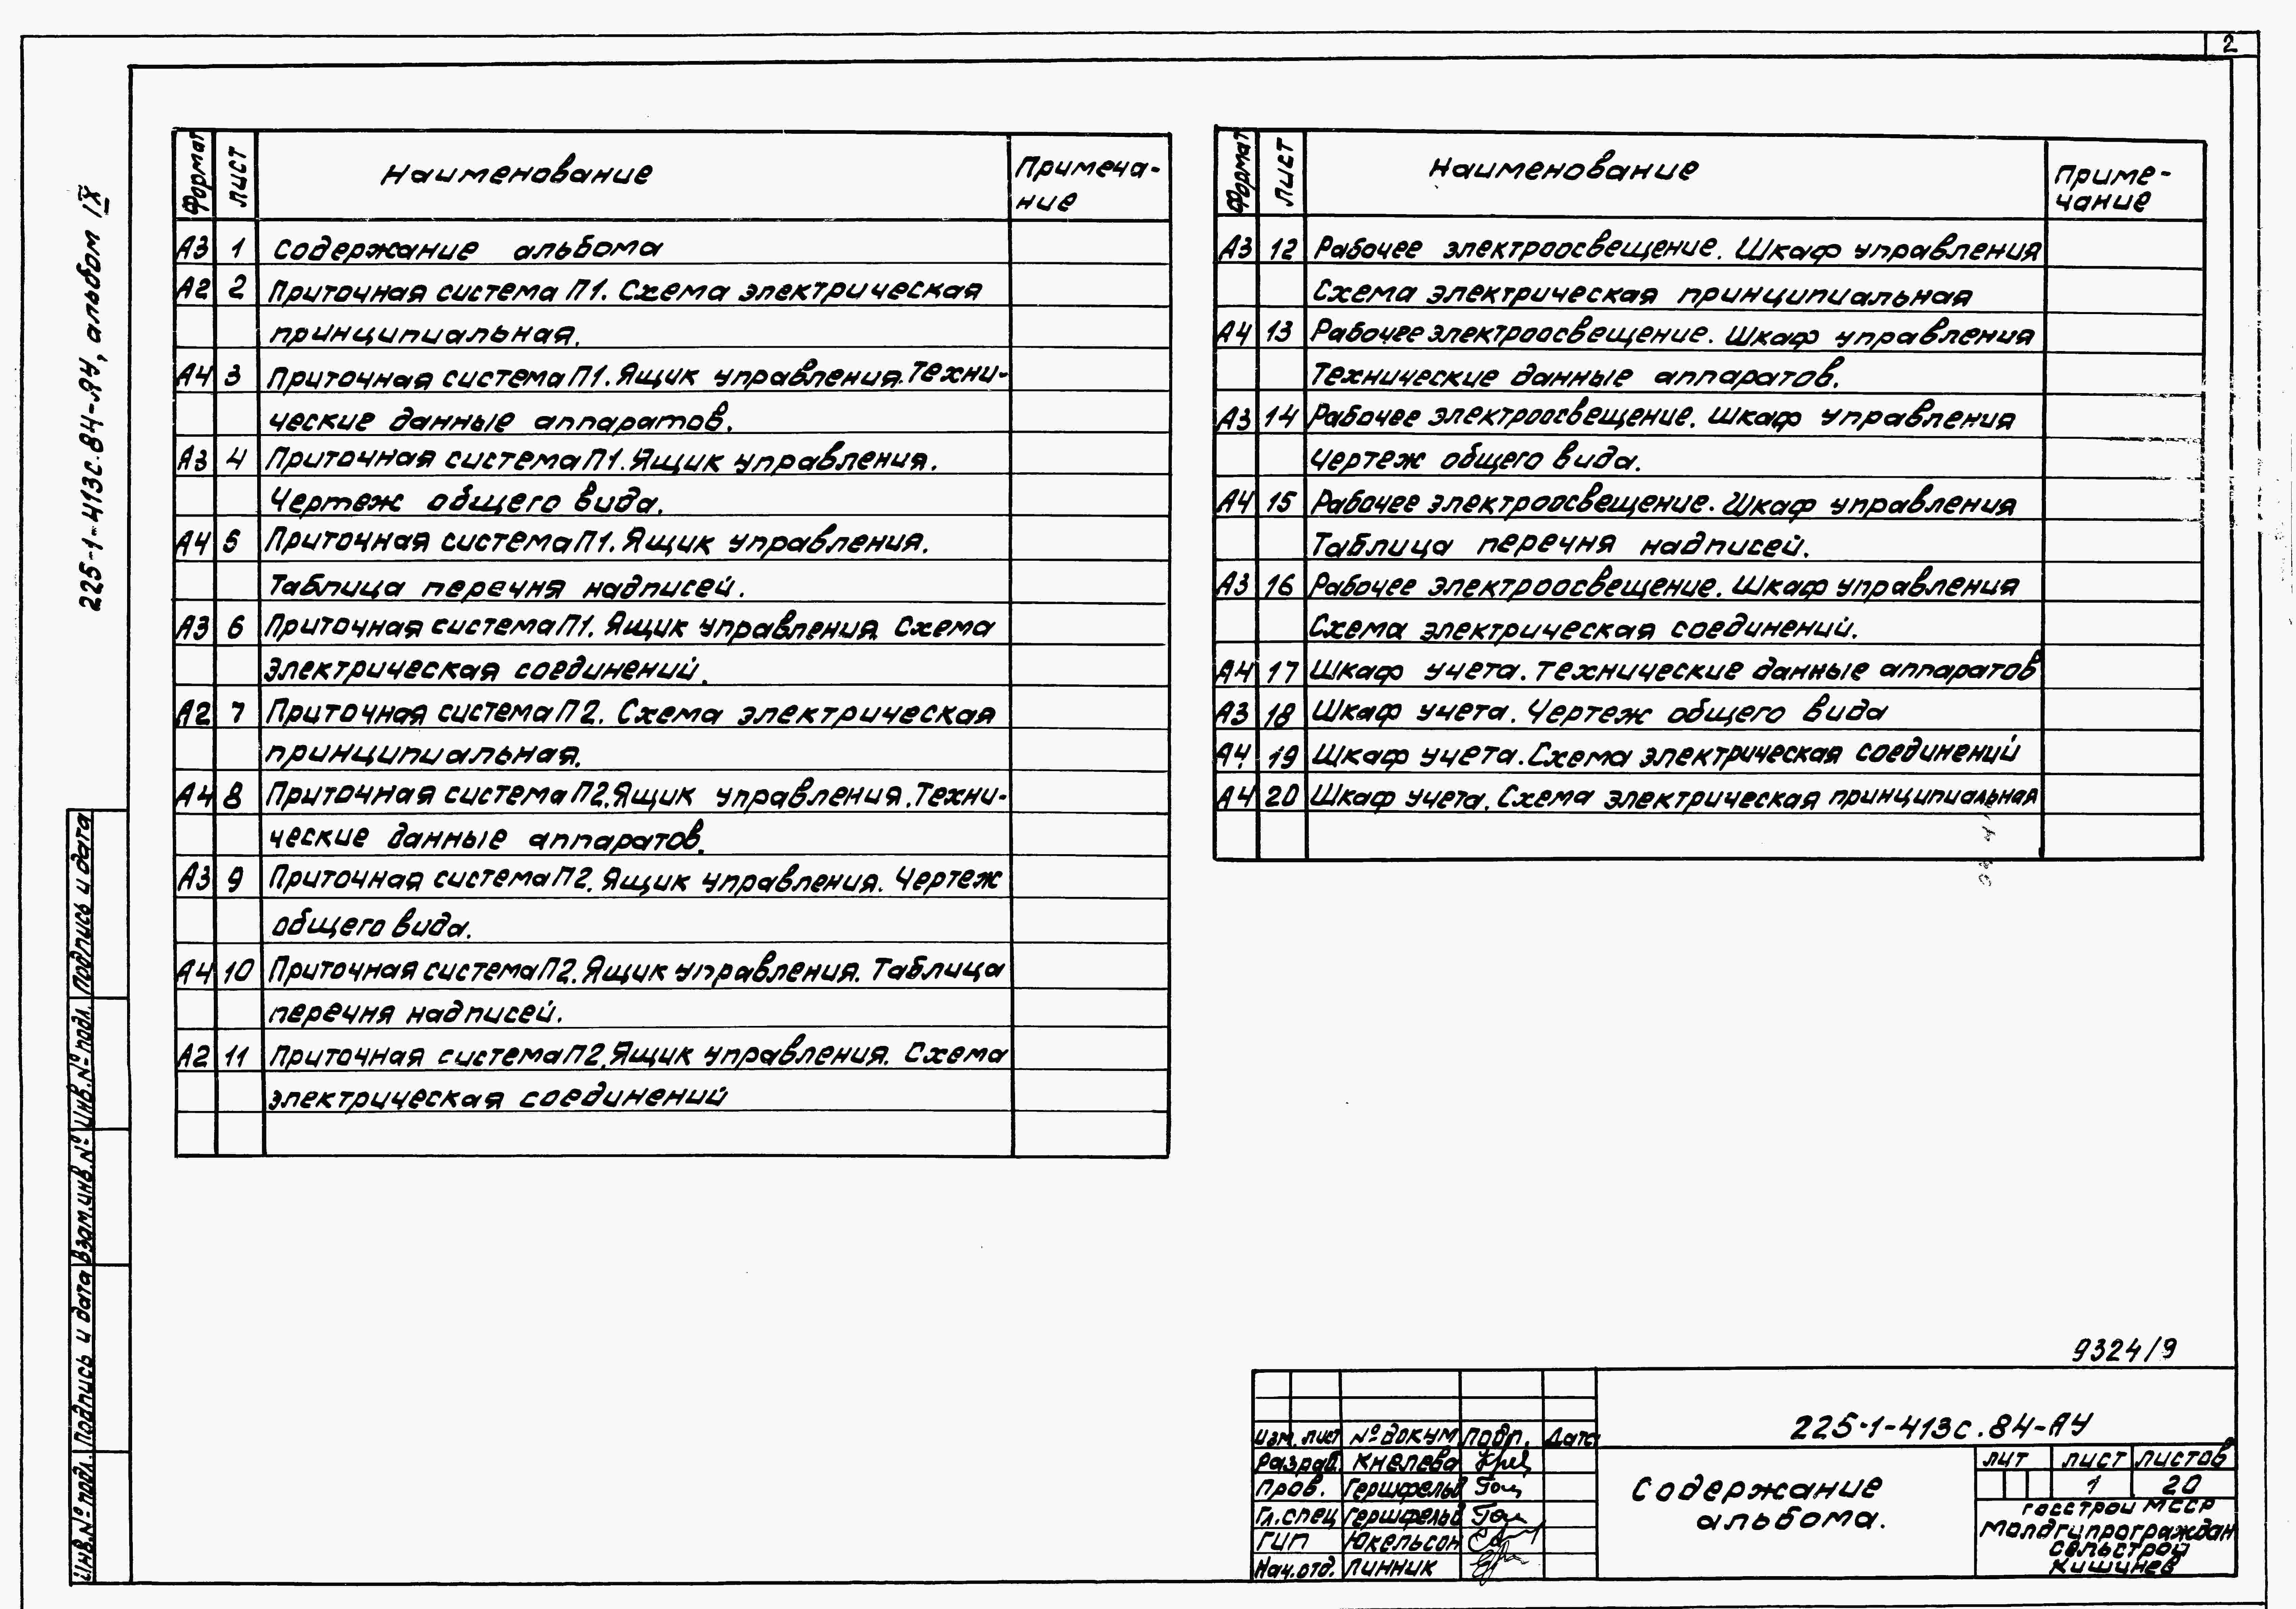 2
225-1-413с.84-АУ, альбом IX
Формат Лист Наименование Примеча-
ние
А3 1 Содержание альбома
А2 2 Приточная система П1. Схема электрическая
принципиальная.
А4 3 Приточная система П1. Ящик управления. Техни-
ческие данные аппаратов.
А3 4 Приточная система П1. Ящик управления.
Чертеж общего вида.
А4 5 Приточная система П1. Ящик управления.
Таблица перечня надписей.
А3 6 Приточная система П1. Ящик управления. Схема
электрическая соединений.
А2 7 Приточная система П2. Схема электрическая
принципиальная.
А4 8 Приточная система П2. Ящик управления. Техни-
ческие данные аппаратов.
А3 9 Приточная система П2. Ящик управления. Чертеж
общего вида.
А4 10 Приточная система П2. Ящик управления. Таблица
перечня надписей.
А2 11 Приточная система П2. Ящик управления. Схема
электрическая соединений
Формат Лист Наименование Приме-
чание
А3 12 Рабочее электроосвещение. Шкаф управления
Схема электрическая принципиальная
А4 13 Рабочее электроосвещение. Шкаф управления
Технические данные аппаратов.
А3 14 Рабочее электроосвещение. Шкаф управления
Чертеж общего вида.
А4 15 Рабочее электроосвещение. Шкаф управления
Таблица перечня надписей.
А3 16 Рабочее электроосвещение. Шкаф управления
Схема электрическая соединений.
А4 17 Шкаф учета. Технические данные аппаратов
А3 18 Шкаф учета. Чертеж общего вида
А4 19 Шкаф учета. Схема электрическая соединений
А4 20 Шкаф учета. Схема электрическая принципиальная
Подпись и дата
Инв.№ подл.
Взам.инв.№
Подпись и дата
Инв.№ подл.
9324/9
Изм. лист № докум Подп. Дата
Разраб. Кнелева
Пров. Гершфельд
Гл.спец Гершфельд
ГИП Юкельсон
Нач.отд. Линник
225-1-413с.84-АУ
Содержание
альбома.
лит лист листов
1 20
Госстрой МССР
Молдгипрограждан
сельстрой
Кишинев